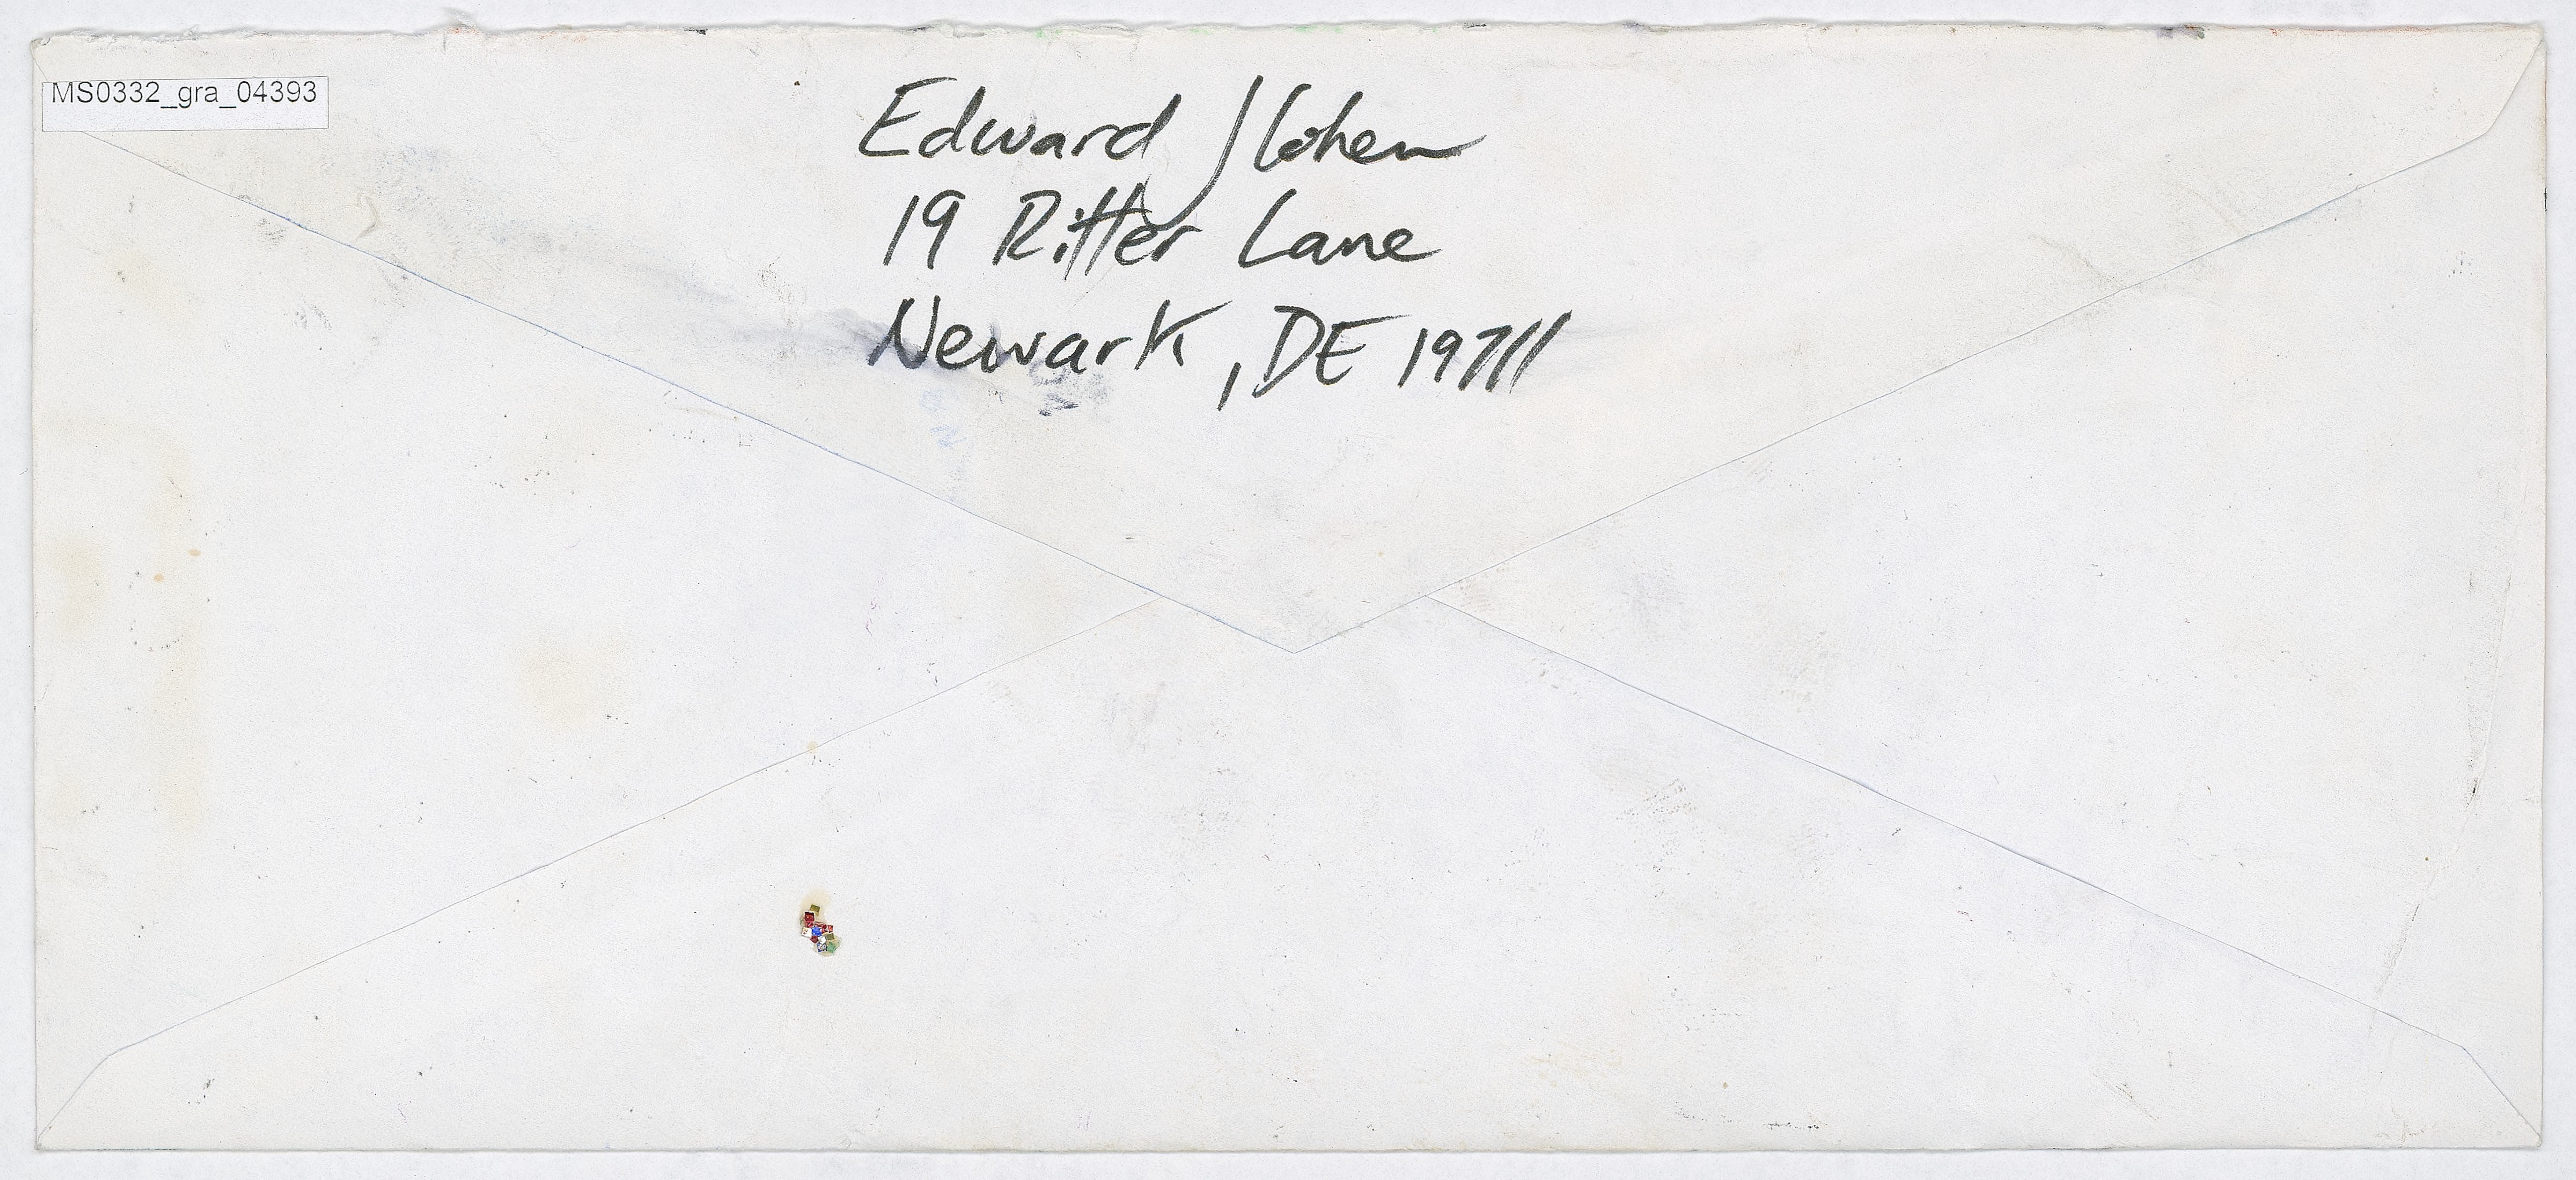 MS0332_gra_04393
Edward J Cohen
19 Ritter Lane
Newark, DE 19711